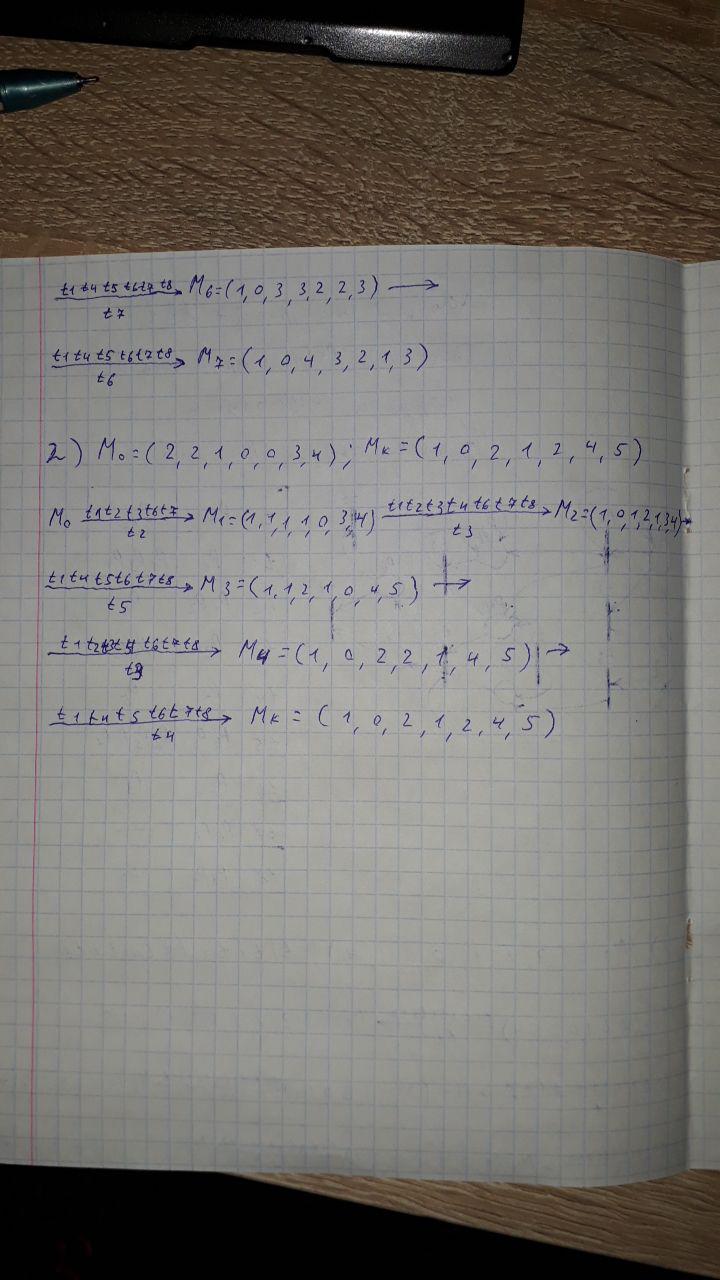 t1 t4 t5 t6 t7 t8 M6=(1,0,3,3,2,2,3) →
t7
t1 t4 t5 t6 t7 t8 M7=(1,0,4,3,2,1,3)
t6
2) M0=(2,2,1,0,0,3,4); Mk=(1,0,2,1,2,4,5)
M0 t1 t2 t3 t6 t7 M1=(1,1,1,1,0,3,4) t1 t2 t3 t4 t6 t7 t8 M2=(1,0,1,2,1,3,4)→
t2 t3
t1 t4 t5 t6 t7 t8 M3=(1,1,2,1,0,4,5) →
t5
t1 t6 t7 t8 M4=(1,0,2,2,1,4,5) →
t1 t4 t5 t6 t7 t8 Mk = (1,0,2,1,2,4,5)
t4